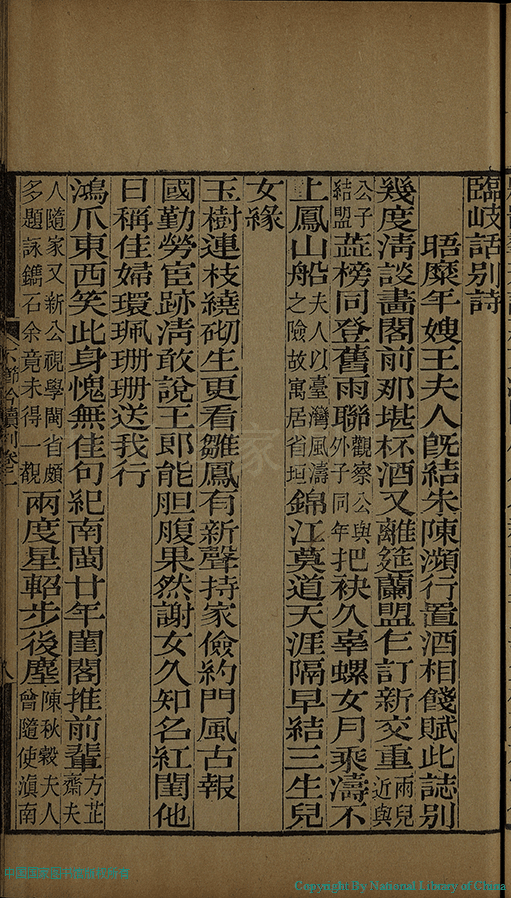 臨岐話別詩
晤糜年嫂王夫人旣結朱陳瀕行置酒相餞賦此誌別
幾度淸談畵閣前那堪杯酒又離筵蘭盟乍訂新交重兩兒近與
公子結盟蕋榜同登舊雨聯觀察公與外子同年把袂久辜螺女月乘濤不
上鳳山船夫人以臺灣風濤之險故寓居省垣錦江莫道天涯隔早結三生兒
女緣
玉樹連枝繞砌生更看雛鳳有新聲持家儉約門風古報
國勤勞宦跡淸敢說王郎能胆腹果然謝女久知名紅閨他
日稱佳婦環珮珊珊送我行
鴻爪東西笑此身愧無佳句紀南閩廿年閨閣推前輩方芷齋夫
人隨家又新公視學閩省頗多題詠鐫石余竟未得一觀兩度星軺步後塵陳秋榖夫人曾隨使滇南
Copyright By National Library of China